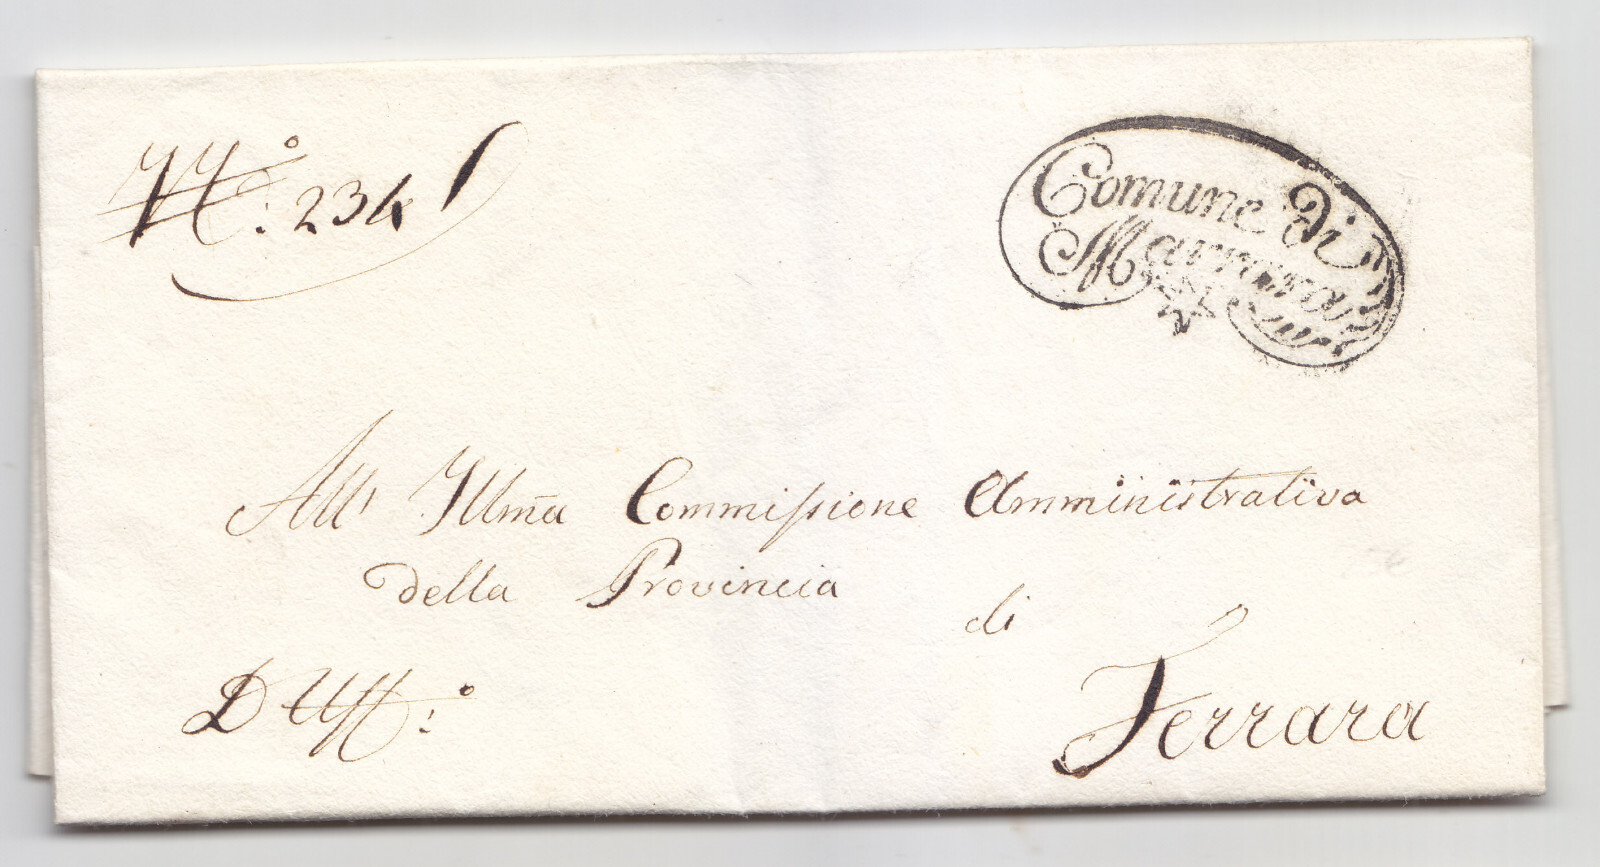 N.° 234
Comune Di
Marrara
All' Illma Commissione Amministrativa
della Provincia
di
D'Uff.°
Ferrara